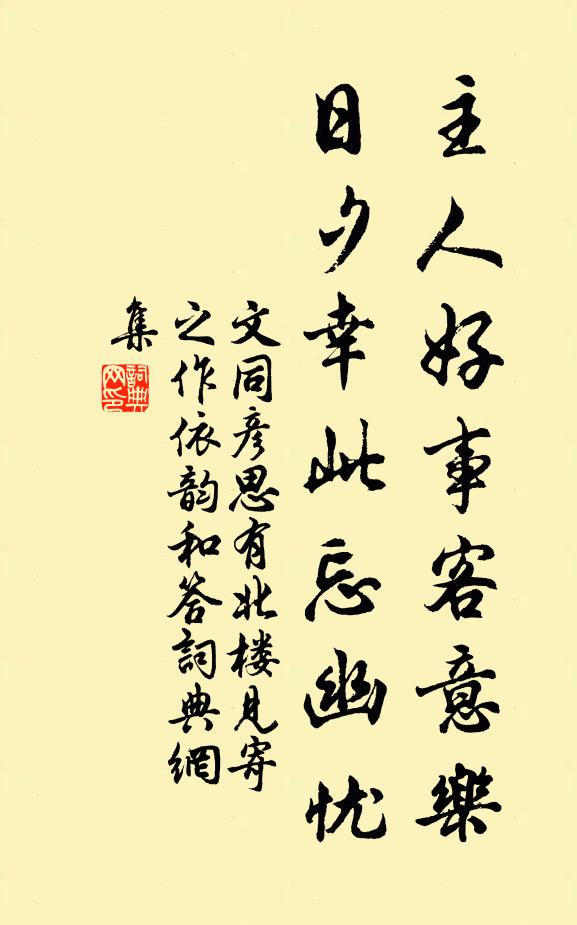 主人好事客意樂
日夕幸此忘幽忧
文同彦思有北楼見寄
之作依韵和答詞典網
集
詞典網印